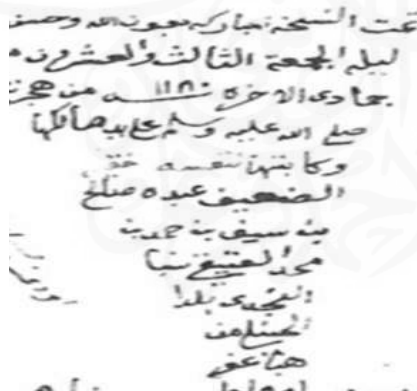 تمت النسخة المباركه بعون الله وحسن
ليلة الجمعة الثالث والعشرون م
جمادى الاخرة سنة ١١٨٠ من هجرت
صلى الله عليه وسلم على يد مالكها
وكاتبها لنفسه
الضعيف عبده صالح
بن سيف بن حمد بن
محمد العتيقي نسبا
النجدي بلدا
الحنبلي مذ
هبا غفر